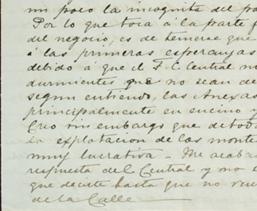 un poco la incognita del po
Por lo que toca á la parte f
del negocio, es de temerse que
á las primeras esperanzas
debido á que el F. C. Central no
durmientes que no sean de
segun entiendo, las
principalmente en encino y
Creo sin embargo que de todo
la explotacion de los monte
muy lucrativa - Me acaba
respuesta del Central y no
que decirte hasta que no
de la Calle